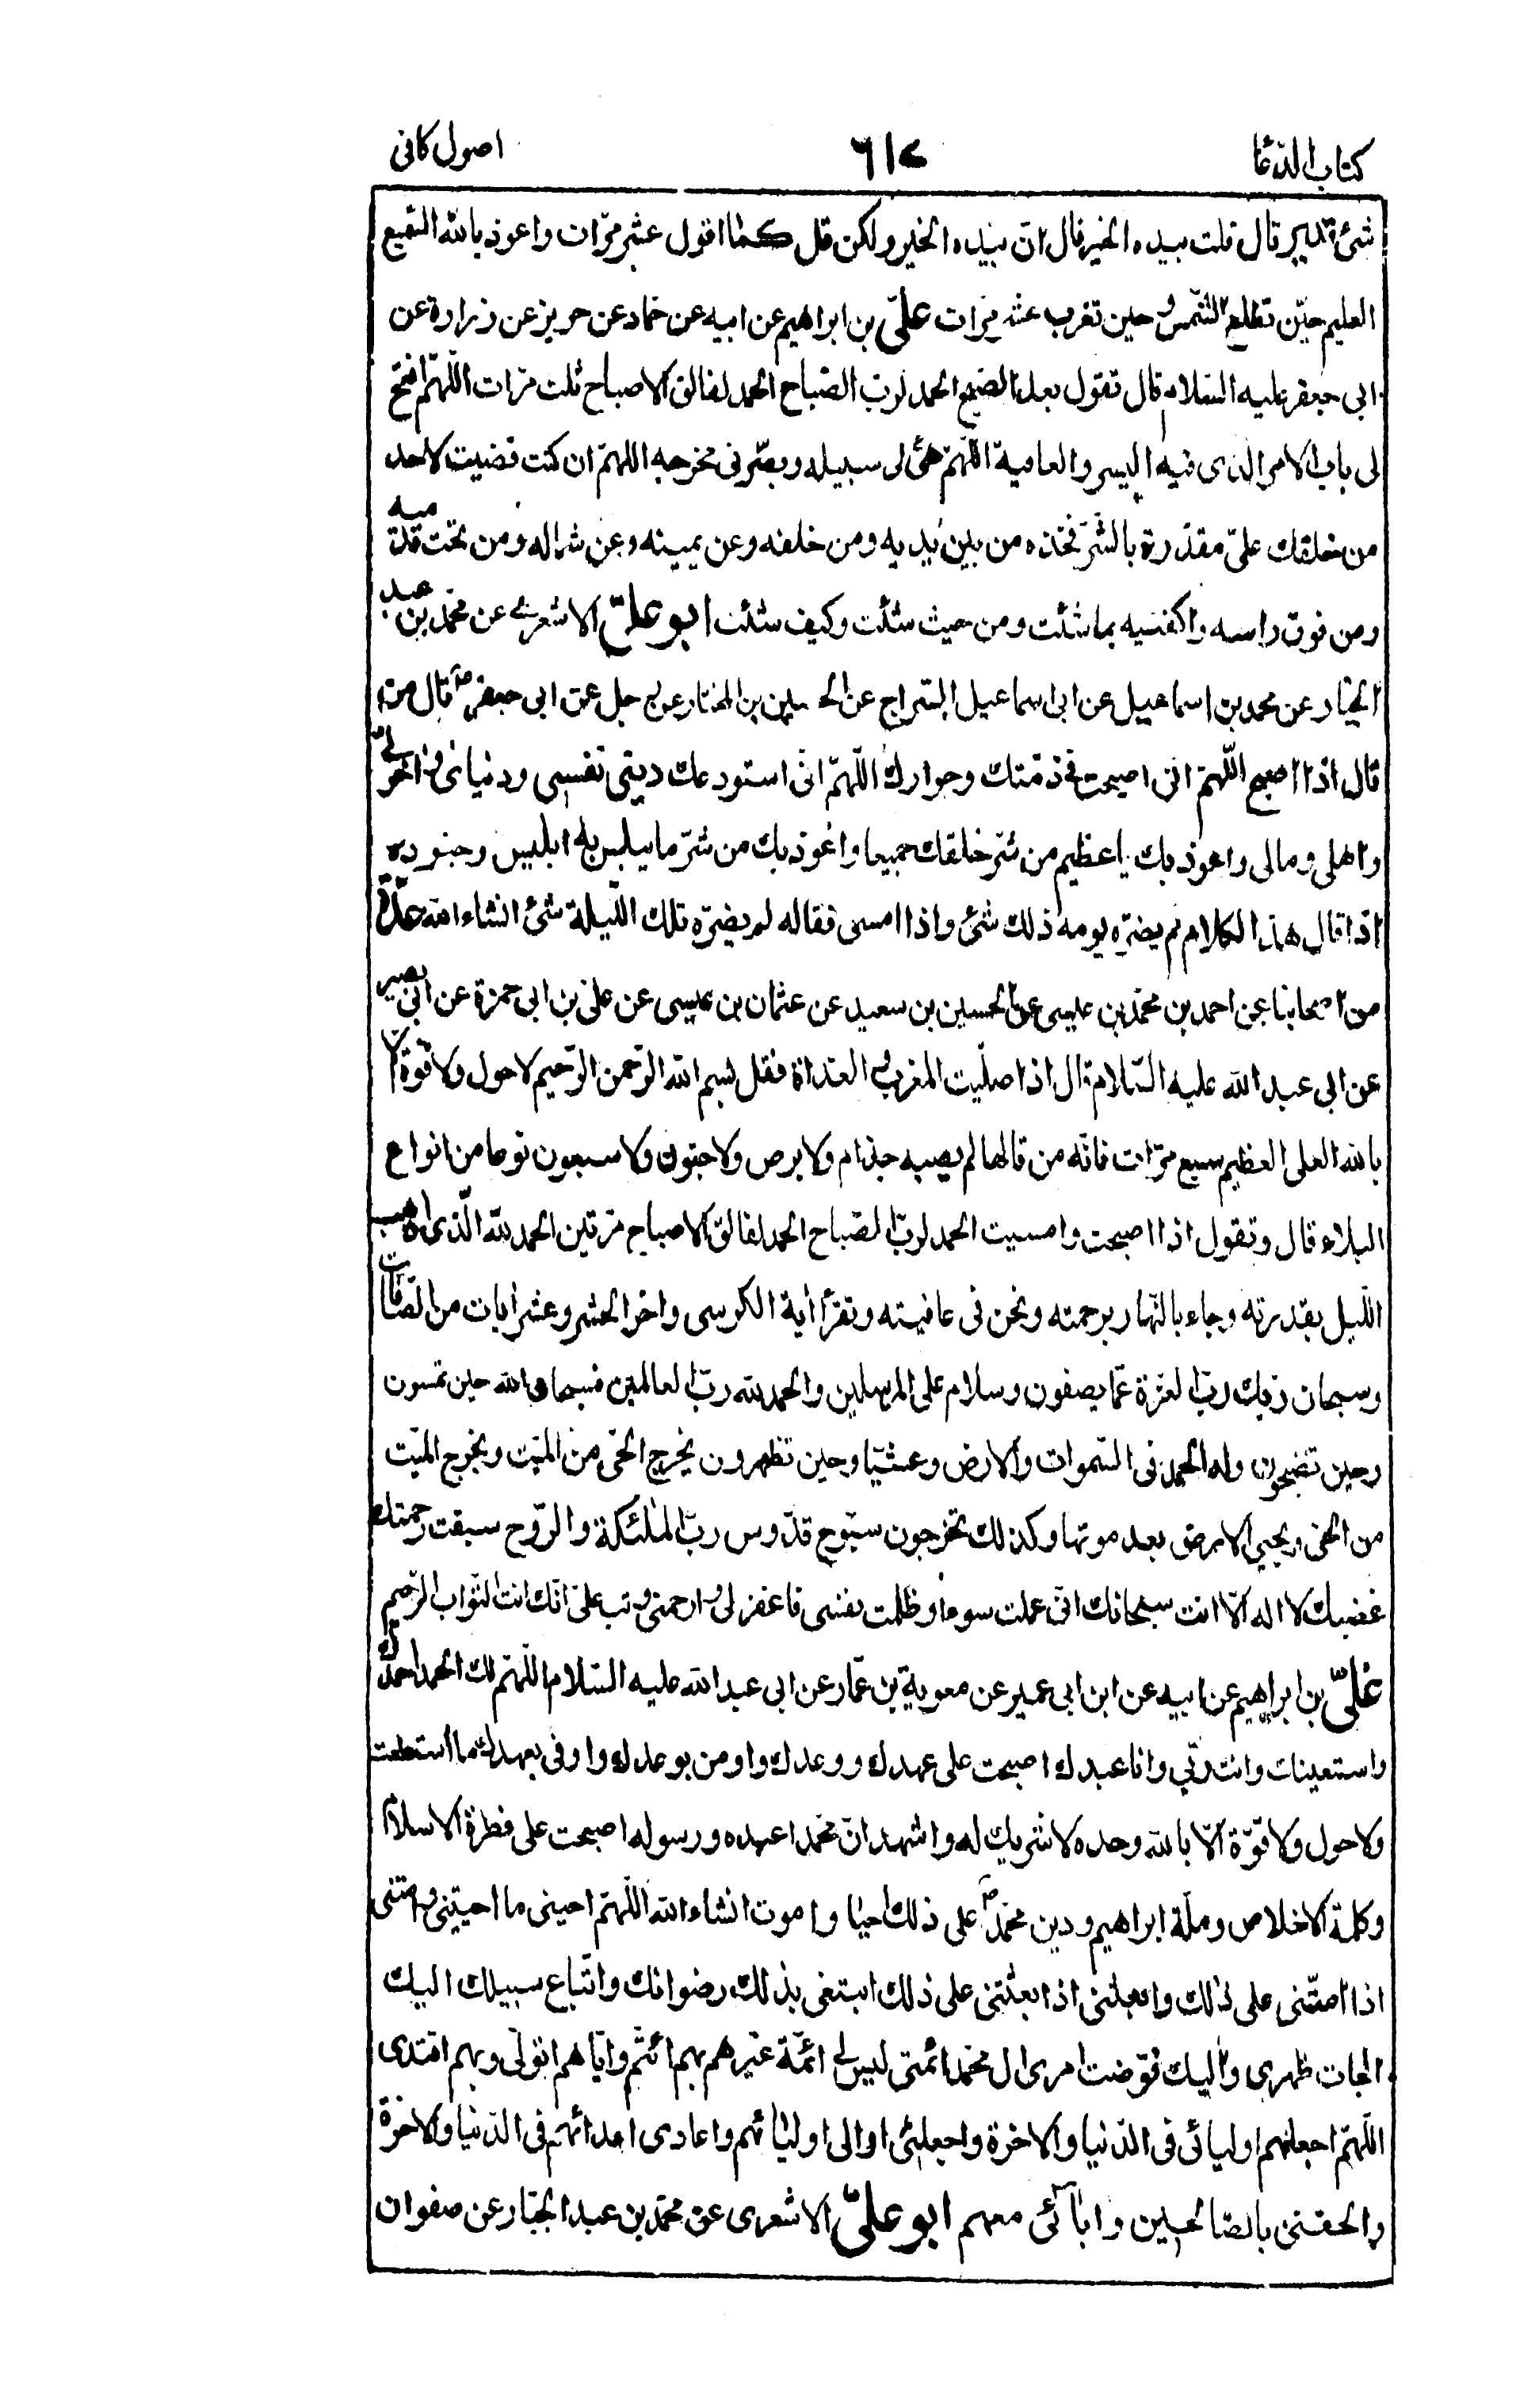 كتاب الدّعا
٦١٧
اصول كافى
شئ قدير قال قلت بيده الخير قال انّ بيده الخير ولكن قل كما اقول عشر مرّات واعوذ بالله السّميع
العليم حين تطلع الشّمس وحين تغرب عشر مرّات علىّ بن ابراهيم عن ابيه عن حمّاد عن حريز عن زرارة عن
ابى جعفر عليه السّلام قال تقول بعد الصّبح الحمد لربّ الصّباح الحمد لفالق الاصباح ثلث مرّات اللّهمّ افتح
لى باب الامر الذى فيه اليسر والعافية اللّهمّ هيّئ لى سبيله وبصّرنى مخرجه اللهمّ ان كنت قضيت لاحد
من خلقك علىّ مقدرة بالشّرّ فخذه من بين يديه ومن خلفه وعن يمينه وعن شماله ومن تحت قدميه
ومن فوق راسه واكفنيه بما شئت ومن حيث شئت وكيف شئت ابو علىّ الاشعرى عن محمّد بن عبد
الجبّار عن محمد بن اسماعيل عن ابى اسماعيل السّراج عن الحسين بن المختار عن رجل عن ابى جعفر ع قال من
قال اذا اصبح اللّهمّ انّى اصبحت فى ذمّتك وجوارك اللّهمّ انّى استودعك دينى ونفسى ودنياى واخرتى
واهلى ومالى واعوذ بك يا عظيم من شرّ خلقك جميعا واعوذ بك من شرّ ما يبلس به ابليس وجنوده
اذا قال هذا الكلام لم يضرّه يومه ذلك شئ واذا امسى فقاله لم يضرّه تلك اللّيلة شئ انشاء الله عدّة
من اصحابنا عن احمد بن محمّد بن عيسى عن الحسين بن سعيد عن عثمان بن عيسى عن علىّ بن ابى حمزة عن ابى بصير
عن ابى عبد الله عليه السّلام قال اذا صلّيت المغرب والغداة فقل بسم الله الرّحمن الرّحيم لا حول ولا قوّة الّا
بالله العلى العظيم سبع مرّات فانّه من قالها لم يصبه جذام ولا برص ولا جنون ولا سبعون نوعا من انواع
البلاء قال وتقول اذا اصبحت وامسيت الحمد لربّ الصّباح الحمد لفالق الاصباح مرّتين الحمد لله الّذى اذهب
اللّيل بقدرته وجاء بالنّهار برحمته ونحن فى عافيته وتقرأ اية الكرسى واخر الحشر وعشر ايات من الصّافّات
وسبحان ربك ربّ العزة عمّا يصفون وسلام على المرسلين والحمد لله ربّ العالمين فسبحان الله حين تمسون
وحين تصبحون وله الحمد فى السّموات والارض وعشيّا وحين تظهرون يخرج الحىّ من الميّت ويخرج الميّت
من الحىّ ويحيى الارض بعد موتها وكذلك تخرجون سبّوح قدّوس ربّ الملئكة والرّوح سبقت رحمتك
غضبك لا اله الّا انت سبحانك انّى عملت سوءا وظلمت نفسى فاغفر لى وارحمنى وتب علىّ انّك انت التّواب الرّحيم
علىّ بن ابراهيم عن ابيه عن ابن ابى عمير عن معوية بن عمّار عن ابى عبد الله عليه السّلام اللّهمّ لك الحمد احمدك
واستعينك وانت ربّى وانا عبدك اصبحت على عهدك ووعدك واومن بوعدك واوفى بعهدك ما استطعت
ولا حول ولا قوّة الّا بالله وحده لا شريك له واشهد انّ محمدا عبده ورسوله اصبحت على فطرة الاسلام
وكلمة الاخلاص وملّة ابراهيم ودين محمّد ص على ذلك احيا واموت انشاء الله اللّهمّ احينى ما احييتنى وامتنى
اذا امتّنى على ذلك وابعثنى اذا بعثتنى على ذلك ابتغى بذلك رضوانك واتّباع سبيلك اليك
الجات ظهرى واليك فوّضت امرى ال محمّد ائمّتى ليس لى ائمّة غيرهم بهم ائتمّ وايّاهم اتولّى وبهم اقتدى
اللّهمّ اجعلهم اوليائى فى الدّنيا والاخرة واجعلنى اوالى اوليائهم واعادى اعدائهم فى الدّنيا والاخرة
والحقنى بالصّالحين واباآئى معهم ابو علىّ الاشعرى عن محمّد بن عبد الجبّار عن صفوان